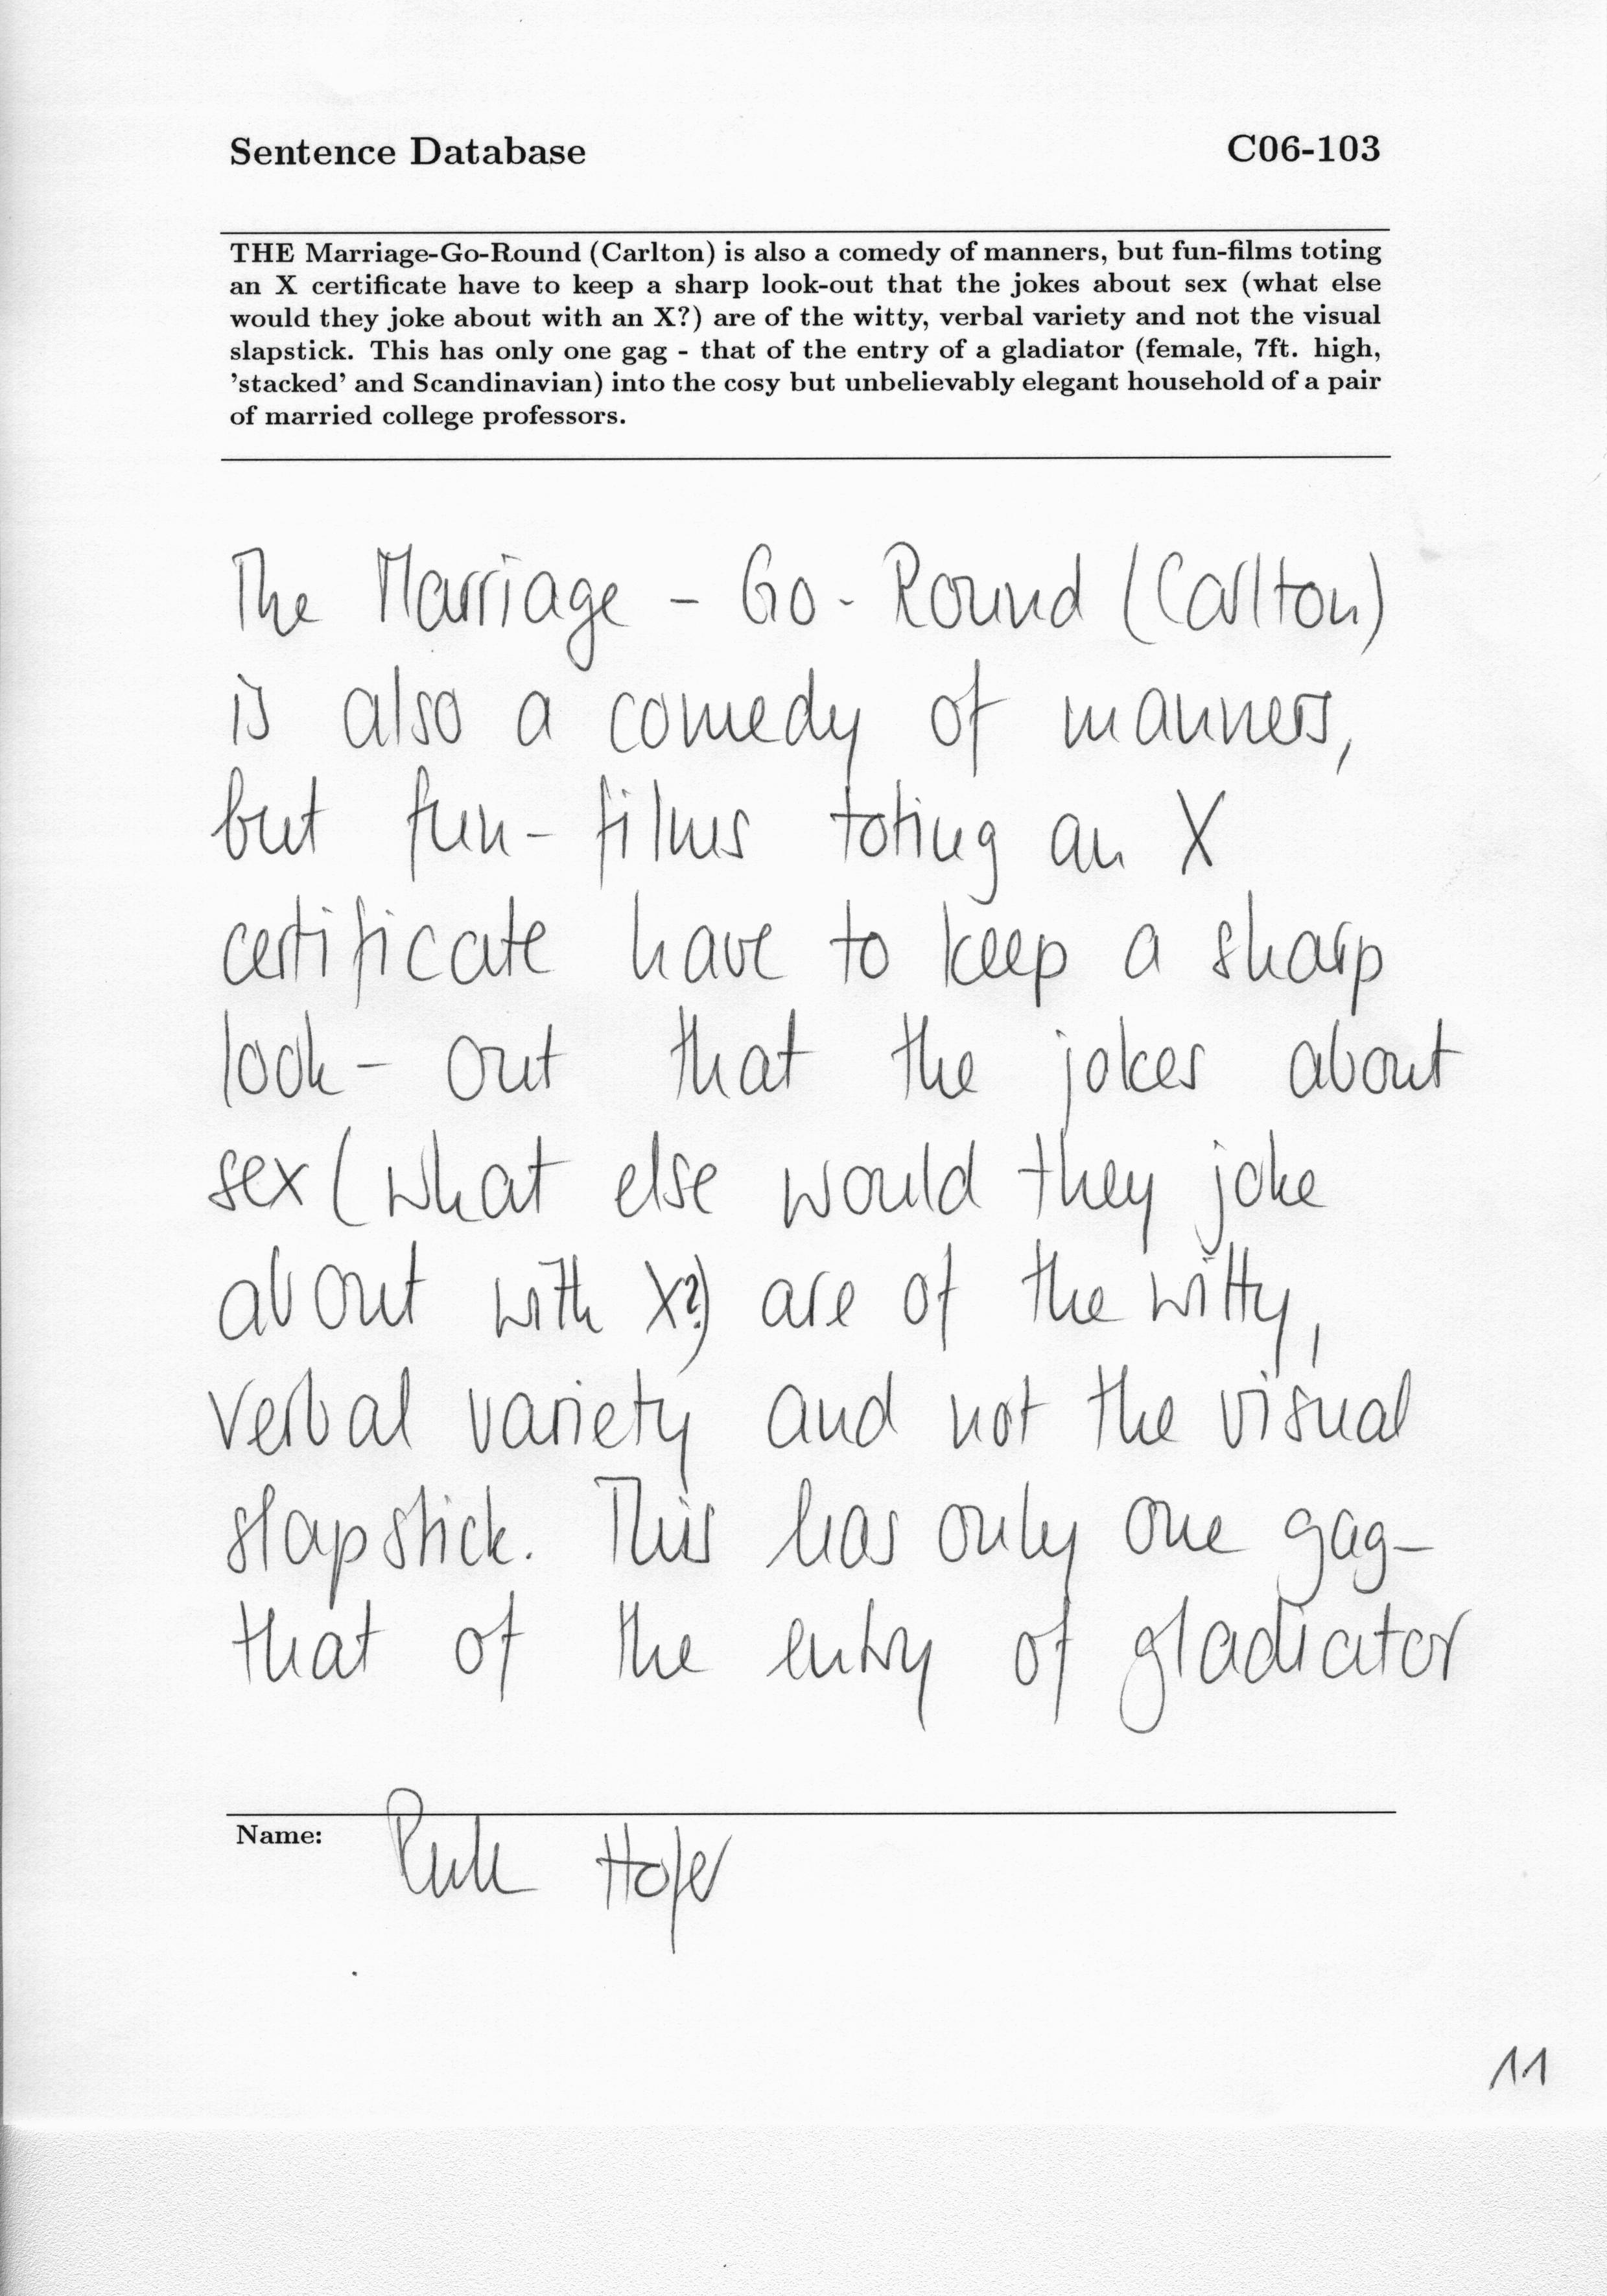 Sentence Database C06-103
THE Marriage-Go-Round (Carlton) is also a comedy of manners, but fun-films toting
an X certificate have to keep a sharp look-out that the jokes about sex (what else
would they joke about with an X?) are of the witty, verbal variety and not the visual
slapstick. This has only one gag - that of the entry of a gladiator (female, 7ft. high,
'stacked' and Scandinavian) into the cosy but unbelievably elegant household of a pair
of married college professors.
The Marriage - Go - Round (Carlton)
is also a comedy of manners,
but fun - films toting an X
certificate have to keep a sharp
look - out that the jokes about
sex (what else would they joke
about with X?) are of the witty,
verbal variety and not the visual
slapstick. This has only one gag -
that of the entry of gladiator
Name: Hofer
11